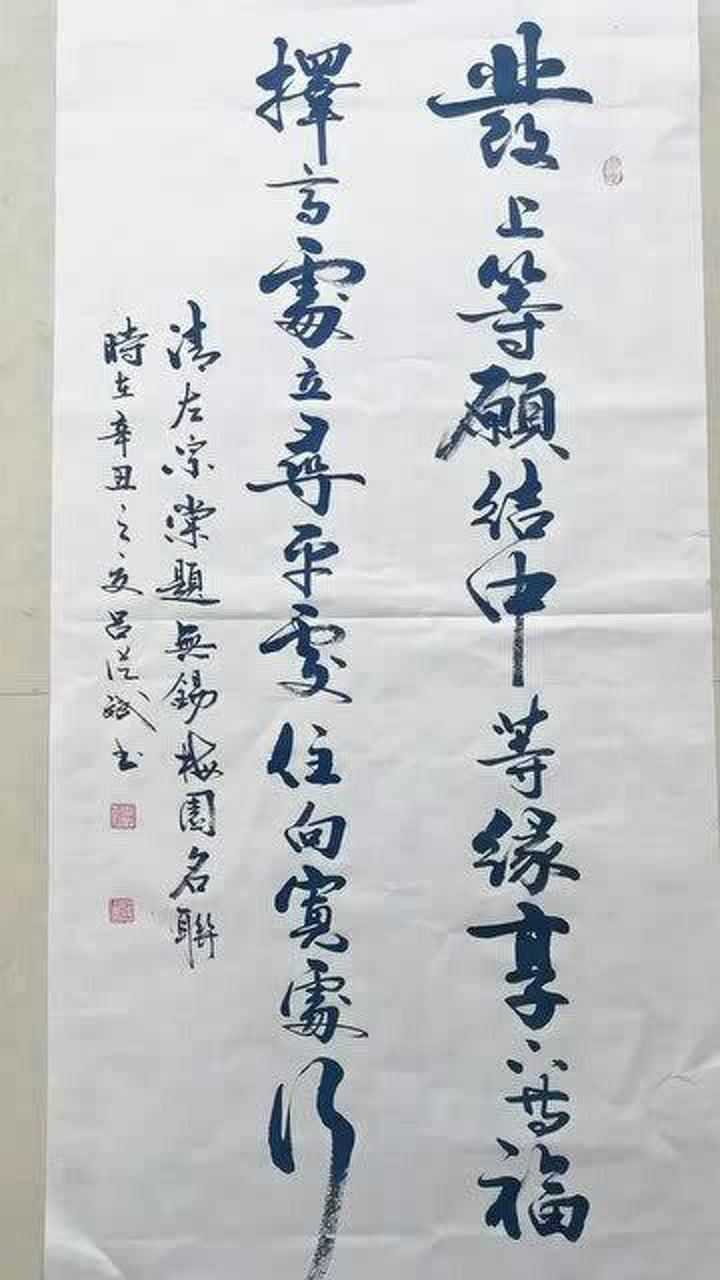 發上等願結中等緣享下等福
擇高處立尋平處住向寬處行
清左宗棠題無錫梅園名聯
時在辛丑之夏呂斌书